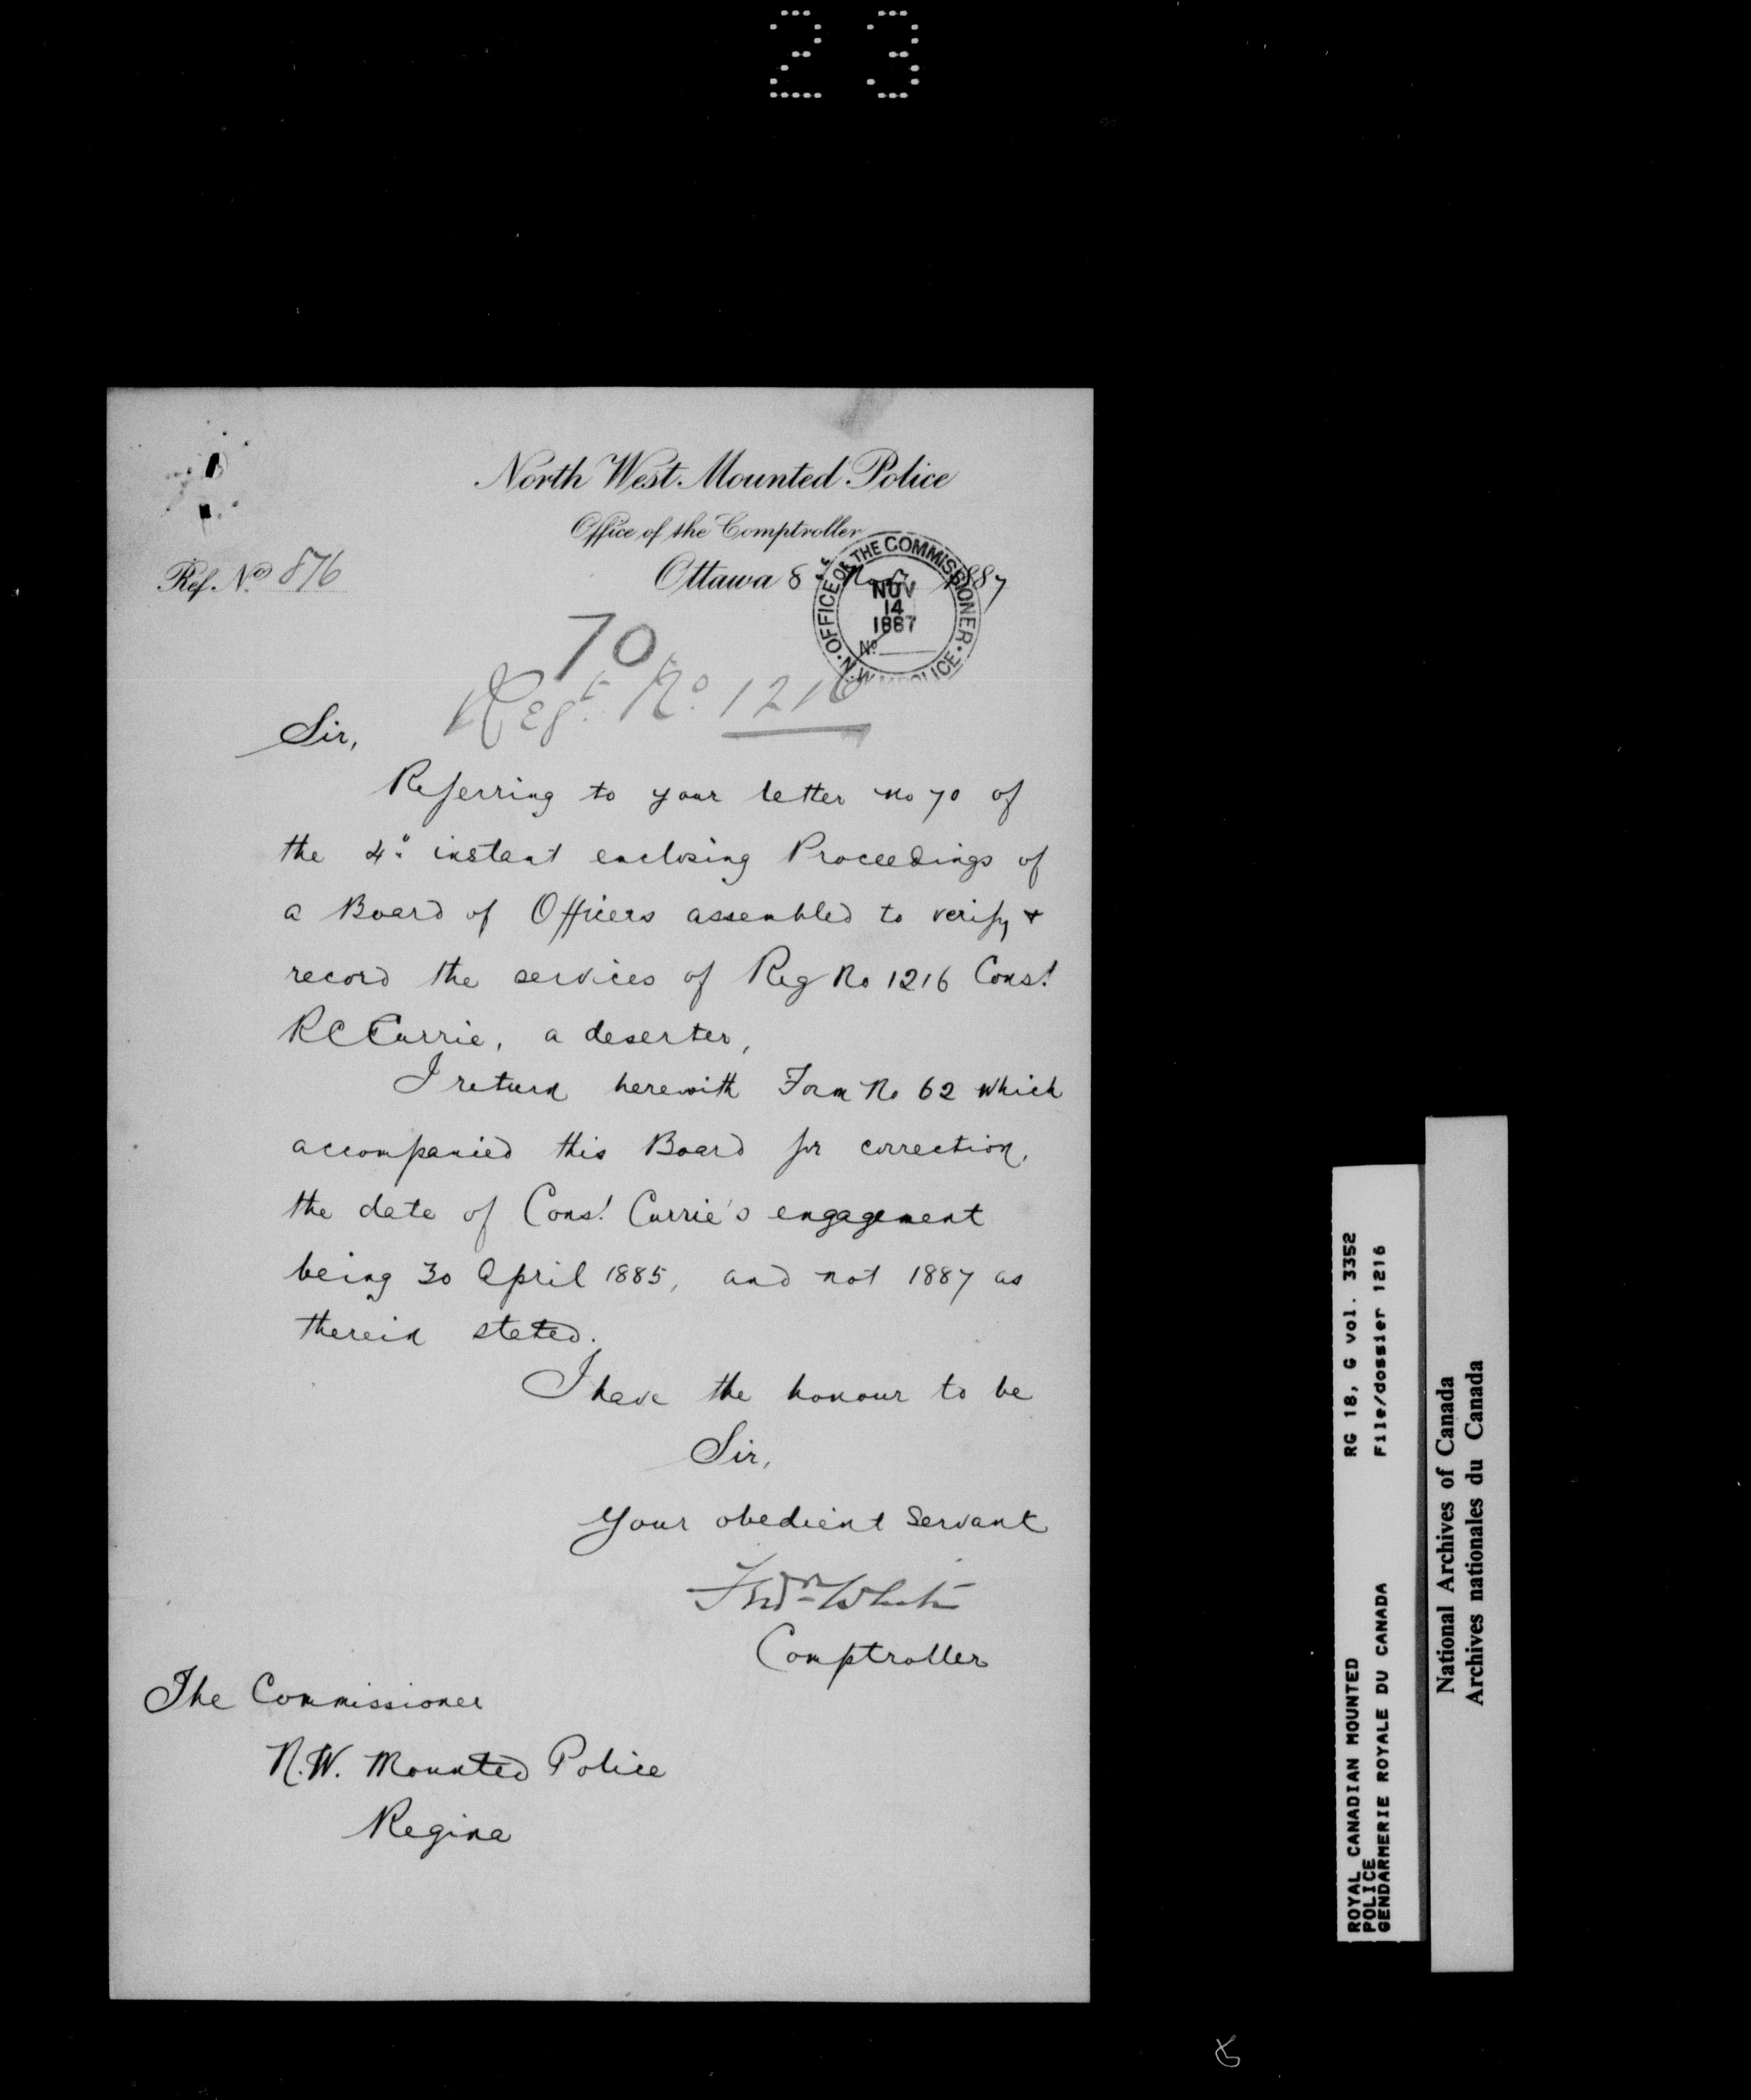 23
North West Mounted Police
Office of the Comptroller
Ref. No. 876
Ottawa 8 Nov. 1887
OFFICE OF THE COMMISSIONER · N.W.M. POLICE ·
NOV
14
1887
No.
70
Regt. No. 1216
Sir,
Referring to your letter No 70 of
the 4th instant enclosing Proceedings of
a Board of Officers assembled to verify &
record the services of Reg No 1216 Const.
R C Currie, a deserter,
I return herewith Form No 62 which
accompanied this Board for correction,
the date of Const. Currie's engagement
being 30 April 1885, and not 1887 as
therein stated.
I have the honour to be
Sir,
Your obedient Servant
Fred White
Comptroller
The Commissioner
N.W. Mounted Police
Regina
ROYAL CANADIAN MOUNTED POLICE
GENDARMERIE ROYALE DU CANADA
RG 18, G vol. 3352
File/dossier 1216
National Archives of Canada
Archives nationales du Canada